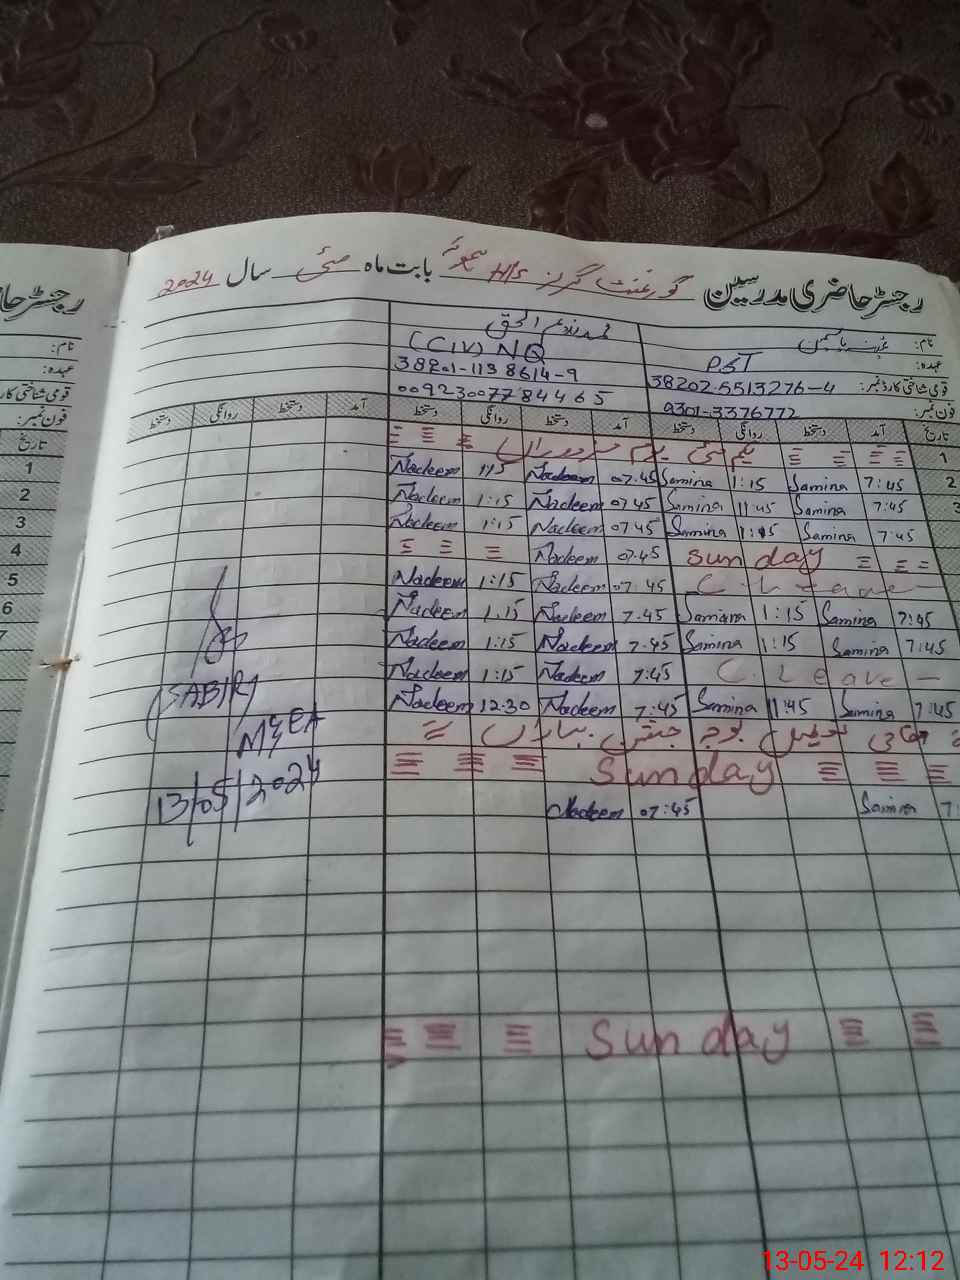 رجسٹر حاضری مدرسین گورنمنٹ گرلز H/s بابت ماہ مئی سال 2024
رجسٹر حا
نام:
عہدہ: PST (CIV) NQ
قومی شناختی کارڈ نمبر: 38202-5513276-4 38201-1138614-9
فون نمبر: 0301-3376772 00923007784465
نام:
عہدہ:
قومی شناختی کارڈ
فون نمبر:
تاریخ آمد دستخط روانگی دستخط آمد دستخط روانگی دستخط آمد دستخط روانگی دستخط
تاریخ
1 یکم مئی یوم مزدوراں
2 7:45 Samina 1:15 Samina 07.45 Nadeem 1:15 Nadeem
3 7:45 Samina 11:45 Samina 07.45 Nadeem 1:15 Nadeem
7:45 Samina 1:15 Samina 07.45 Nadeem 1:15 Nadeem
Sunday 07.45 Nadeem
C. Leave 07.45 Nadeem 1:15 Nadeem
7:45 Samina 1:15 Samina 7.45 Nadeem 1.15 Nadeem
7:45 Samina 1:15 Samina 7.45 Nadeem 1:15 Nadeem
C. Leave 7:45 Nadeem 1:15 Nadeem
7:45 Samina 11:45 Samina 7:45 Nadeem 12.30 Nadeem
Sunday
7: Samina 07:45 Nadeem
Sunday
1
2
3
4
5
6
7
(SABIR)
MEA
13/05/2024
13-05-24 12:12